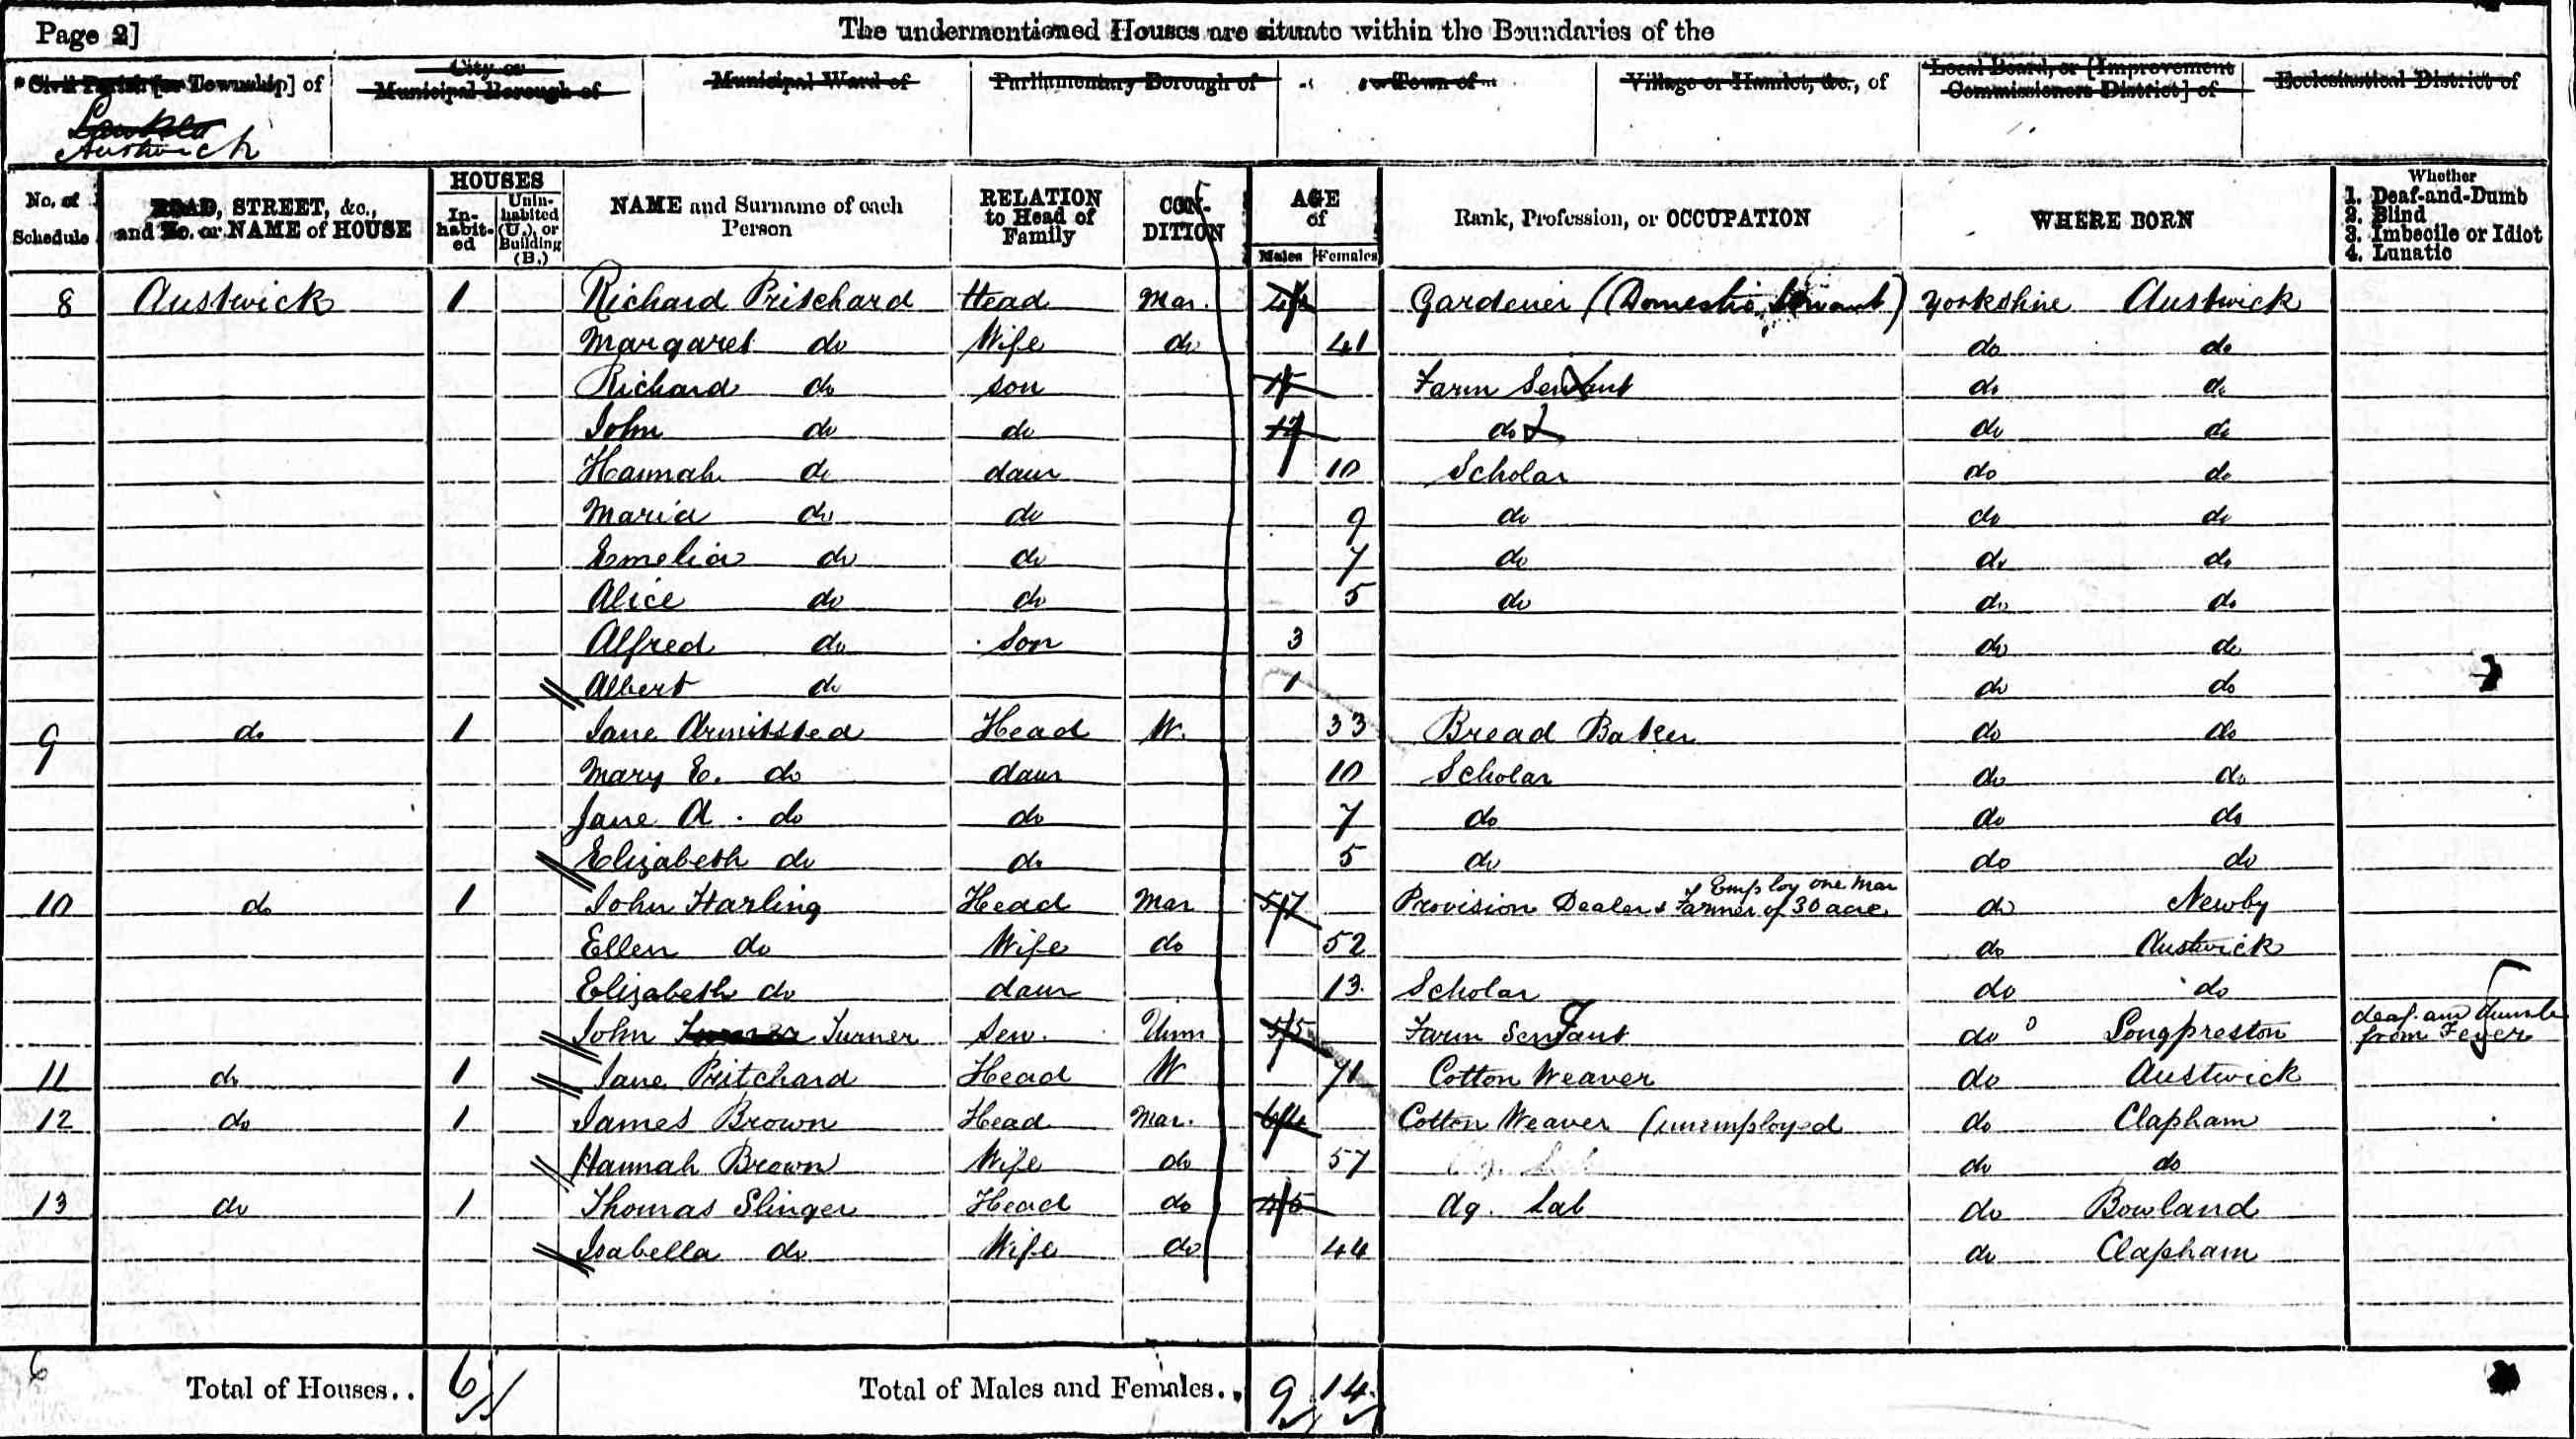 Page 2] The undermentioned Houses are situate within the Boundaries of the
Civil Parish [or Township] of City or Municipal Borough of Municipal Ward of Parliamentary Borough of Town of Village or Hamlet, &c., of Local Board, or [Improvement Commissioners District] of Ecclesiastical District of
Lawkld
Austwick
No. of Schedule ROAD, STREET, &c., and No. or NAME of HOUSE HOUSES In-habit-ed Unin-habited (U.), or Building (B.) NAME and Surname of each Person RELATION to Head of Family CON-DITION AGE of Males Females Rank, Profession, or OCCUPATION WHERE BORN Whether 1. Deaf-and-Dumb 2. Blind 3. Imbecile or Idiot 4. Lunatic
8 Austwick 1 Richard Pritchard Head Mar. Gardener (Domestic Servant) Yorkshire Austwick
Margaret do Wife do 41 do do
Richard do son 15 Farm Servant do do
John do do 12 do do do
Hannah do daur 10 Scholar do do
Maria do do 9 do do do
Emelia do do 7 do do do
Alice do do 5 do do do
Alfred do Son 3 do do
Albert do 1 do do
9 do 1 Jane Armitsted Head W. 33 Bread Baker do do
Mary E. do daur 10 Scholar do do
Jane A. do do 7 do do do
Elizabeth do do 5 do do do
10 do 1 John Harling Head Mar 57 Provision Dealer & Farmer of 30 acre Employ one Man do Newby
Ellen do Wife do 52 do Austwick
Elizabeth do daur 13 Scholar do do
John Turner Serv. Unm 55 Farm Servant do Longpreston deaf and dumb from Fever
11 do 1 Jane Pritchard Head W 71 Cotton Weaver do Austwick
12 do 1 James Brown Head Mar. 64 Cotton Weaver (unemployed do Clapham
Hannah Brown Wife do 57 do do
13 do 1 Thomas Slinger Head do 45 Ag. Lab do Bowland
Isabella do Wife do 44 do Clapham
6 Total of Houses.. 6 Total of Males and Females.. 9 14